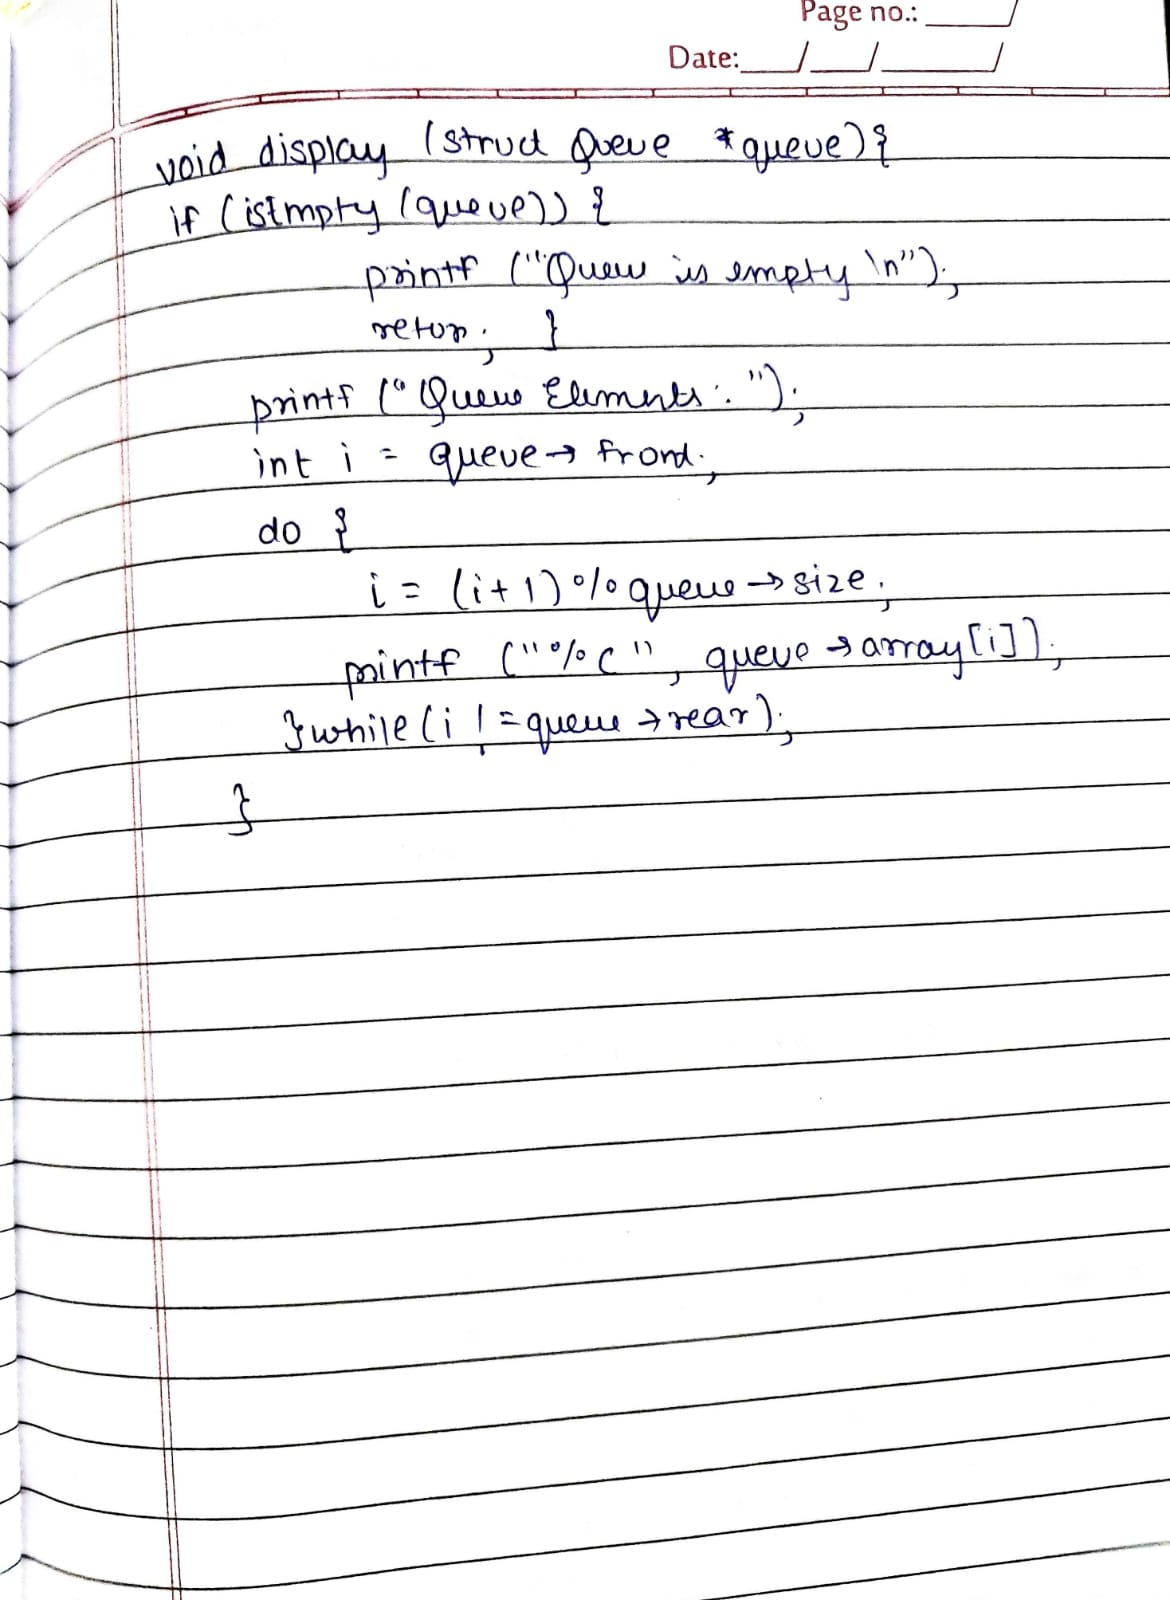 Page no.:
Date: / /
void display (struct Queue *queue){
if (isEmpty (queue)) {
printf ("Queue is empty \n");
return; }
printf ("Queue Elements: ");
int i = queue → front;
do {
i = (i+1) % queue → size;
printf ("%c", queue → array[i]);
} while (i != queue → rear);
}